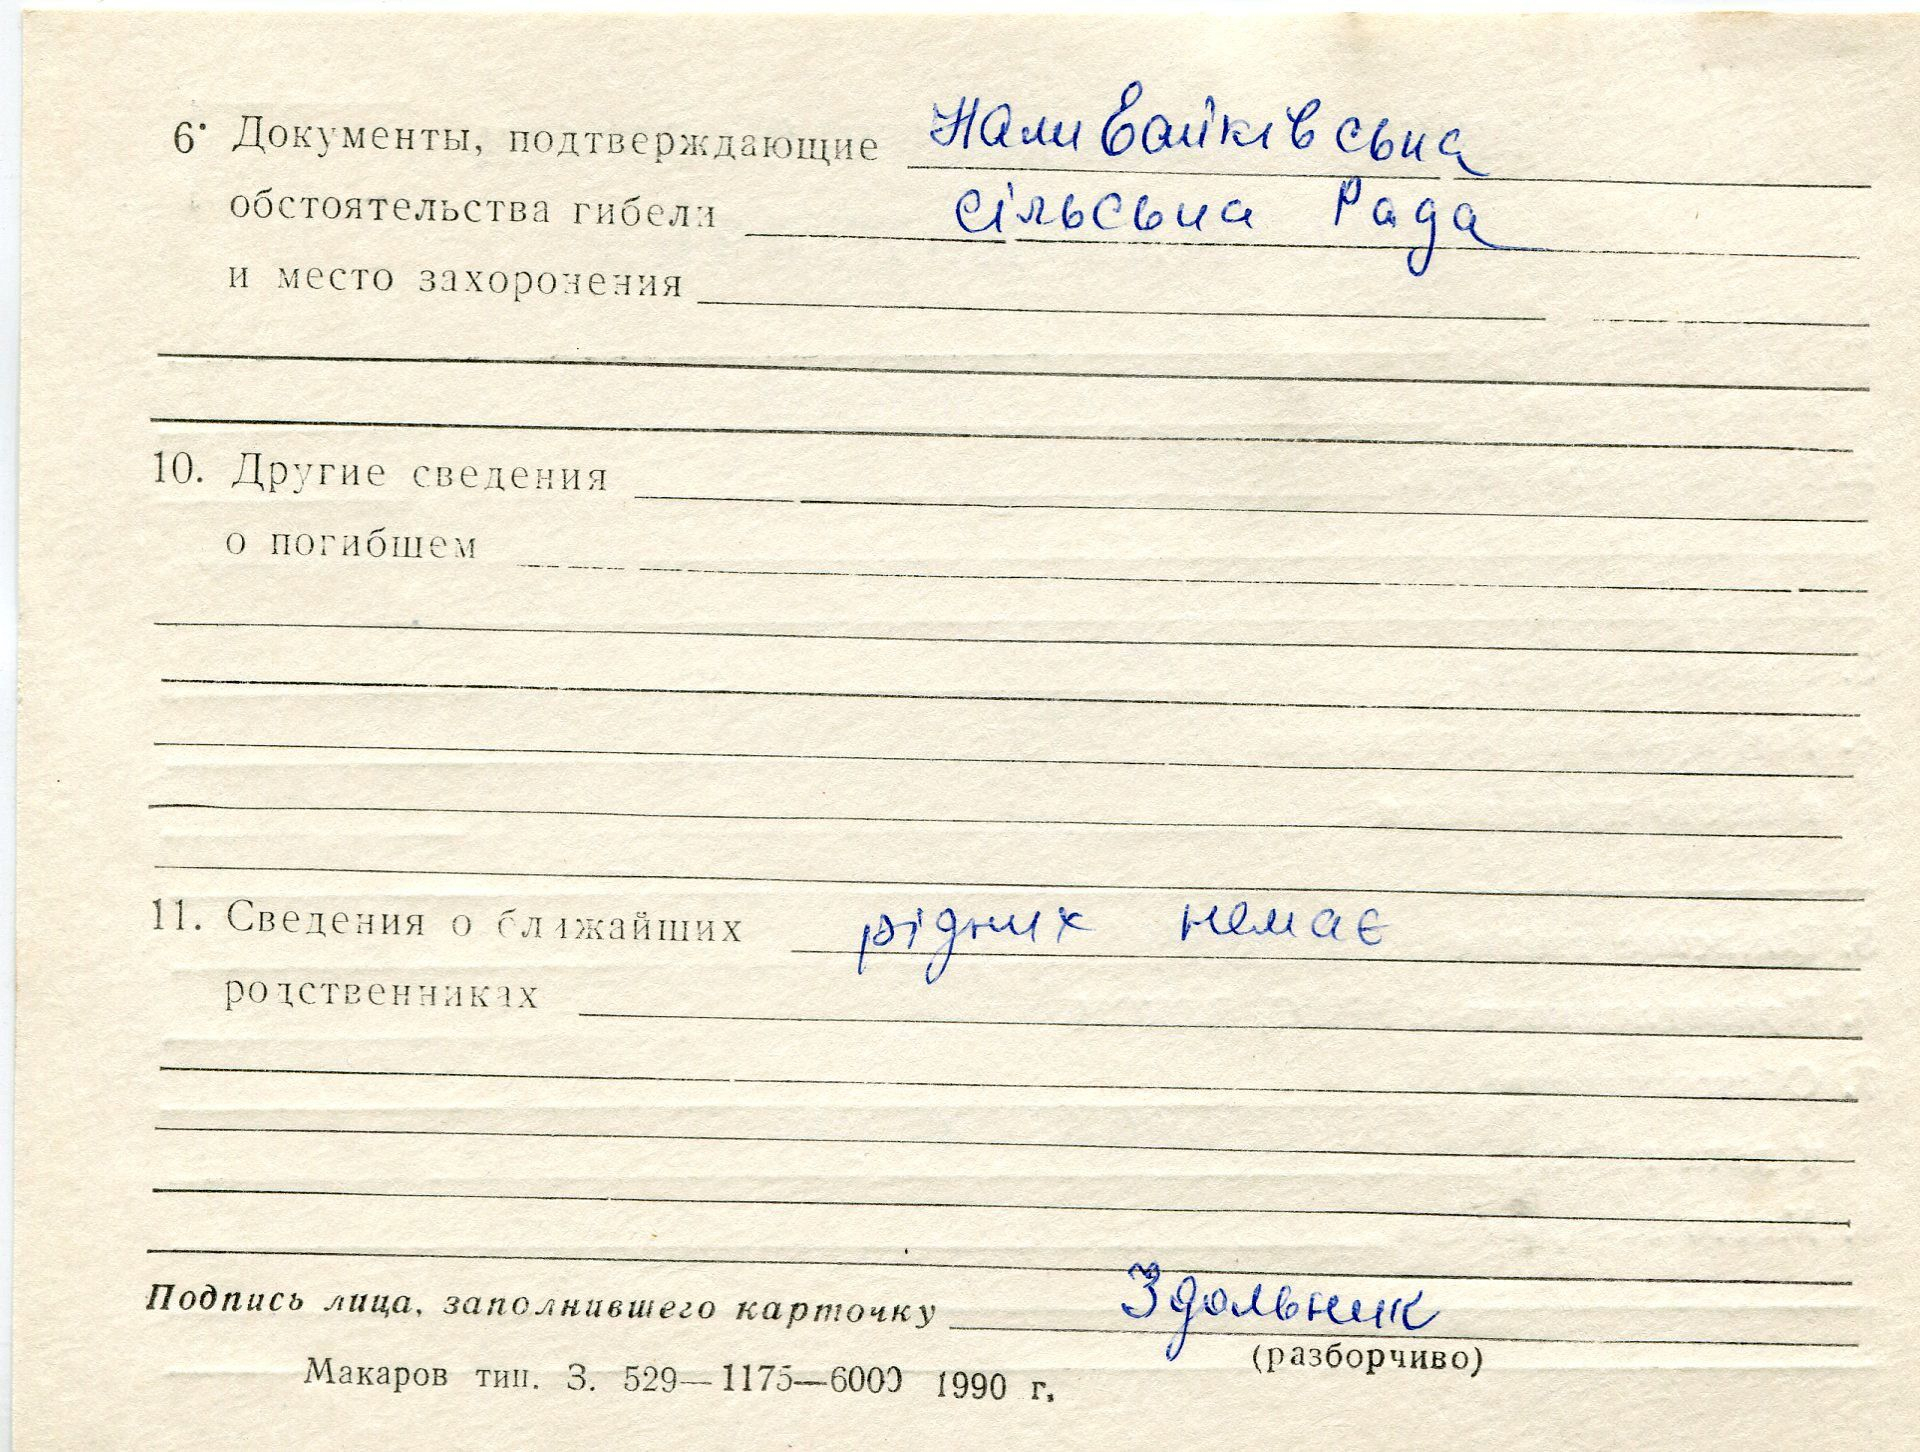 6. Документы, подтверждающие Наливайківська
обстоятельства гибели сільська Рада
и место захоронения
10. Другие сведения
о погибшем
11. Сведения о ближайших рідних немає
родственниках
Подпись лица, заполнившего карточку Здольник
(разборчиво)
Макаров тип. З. 529—1175—6000 1990 г.